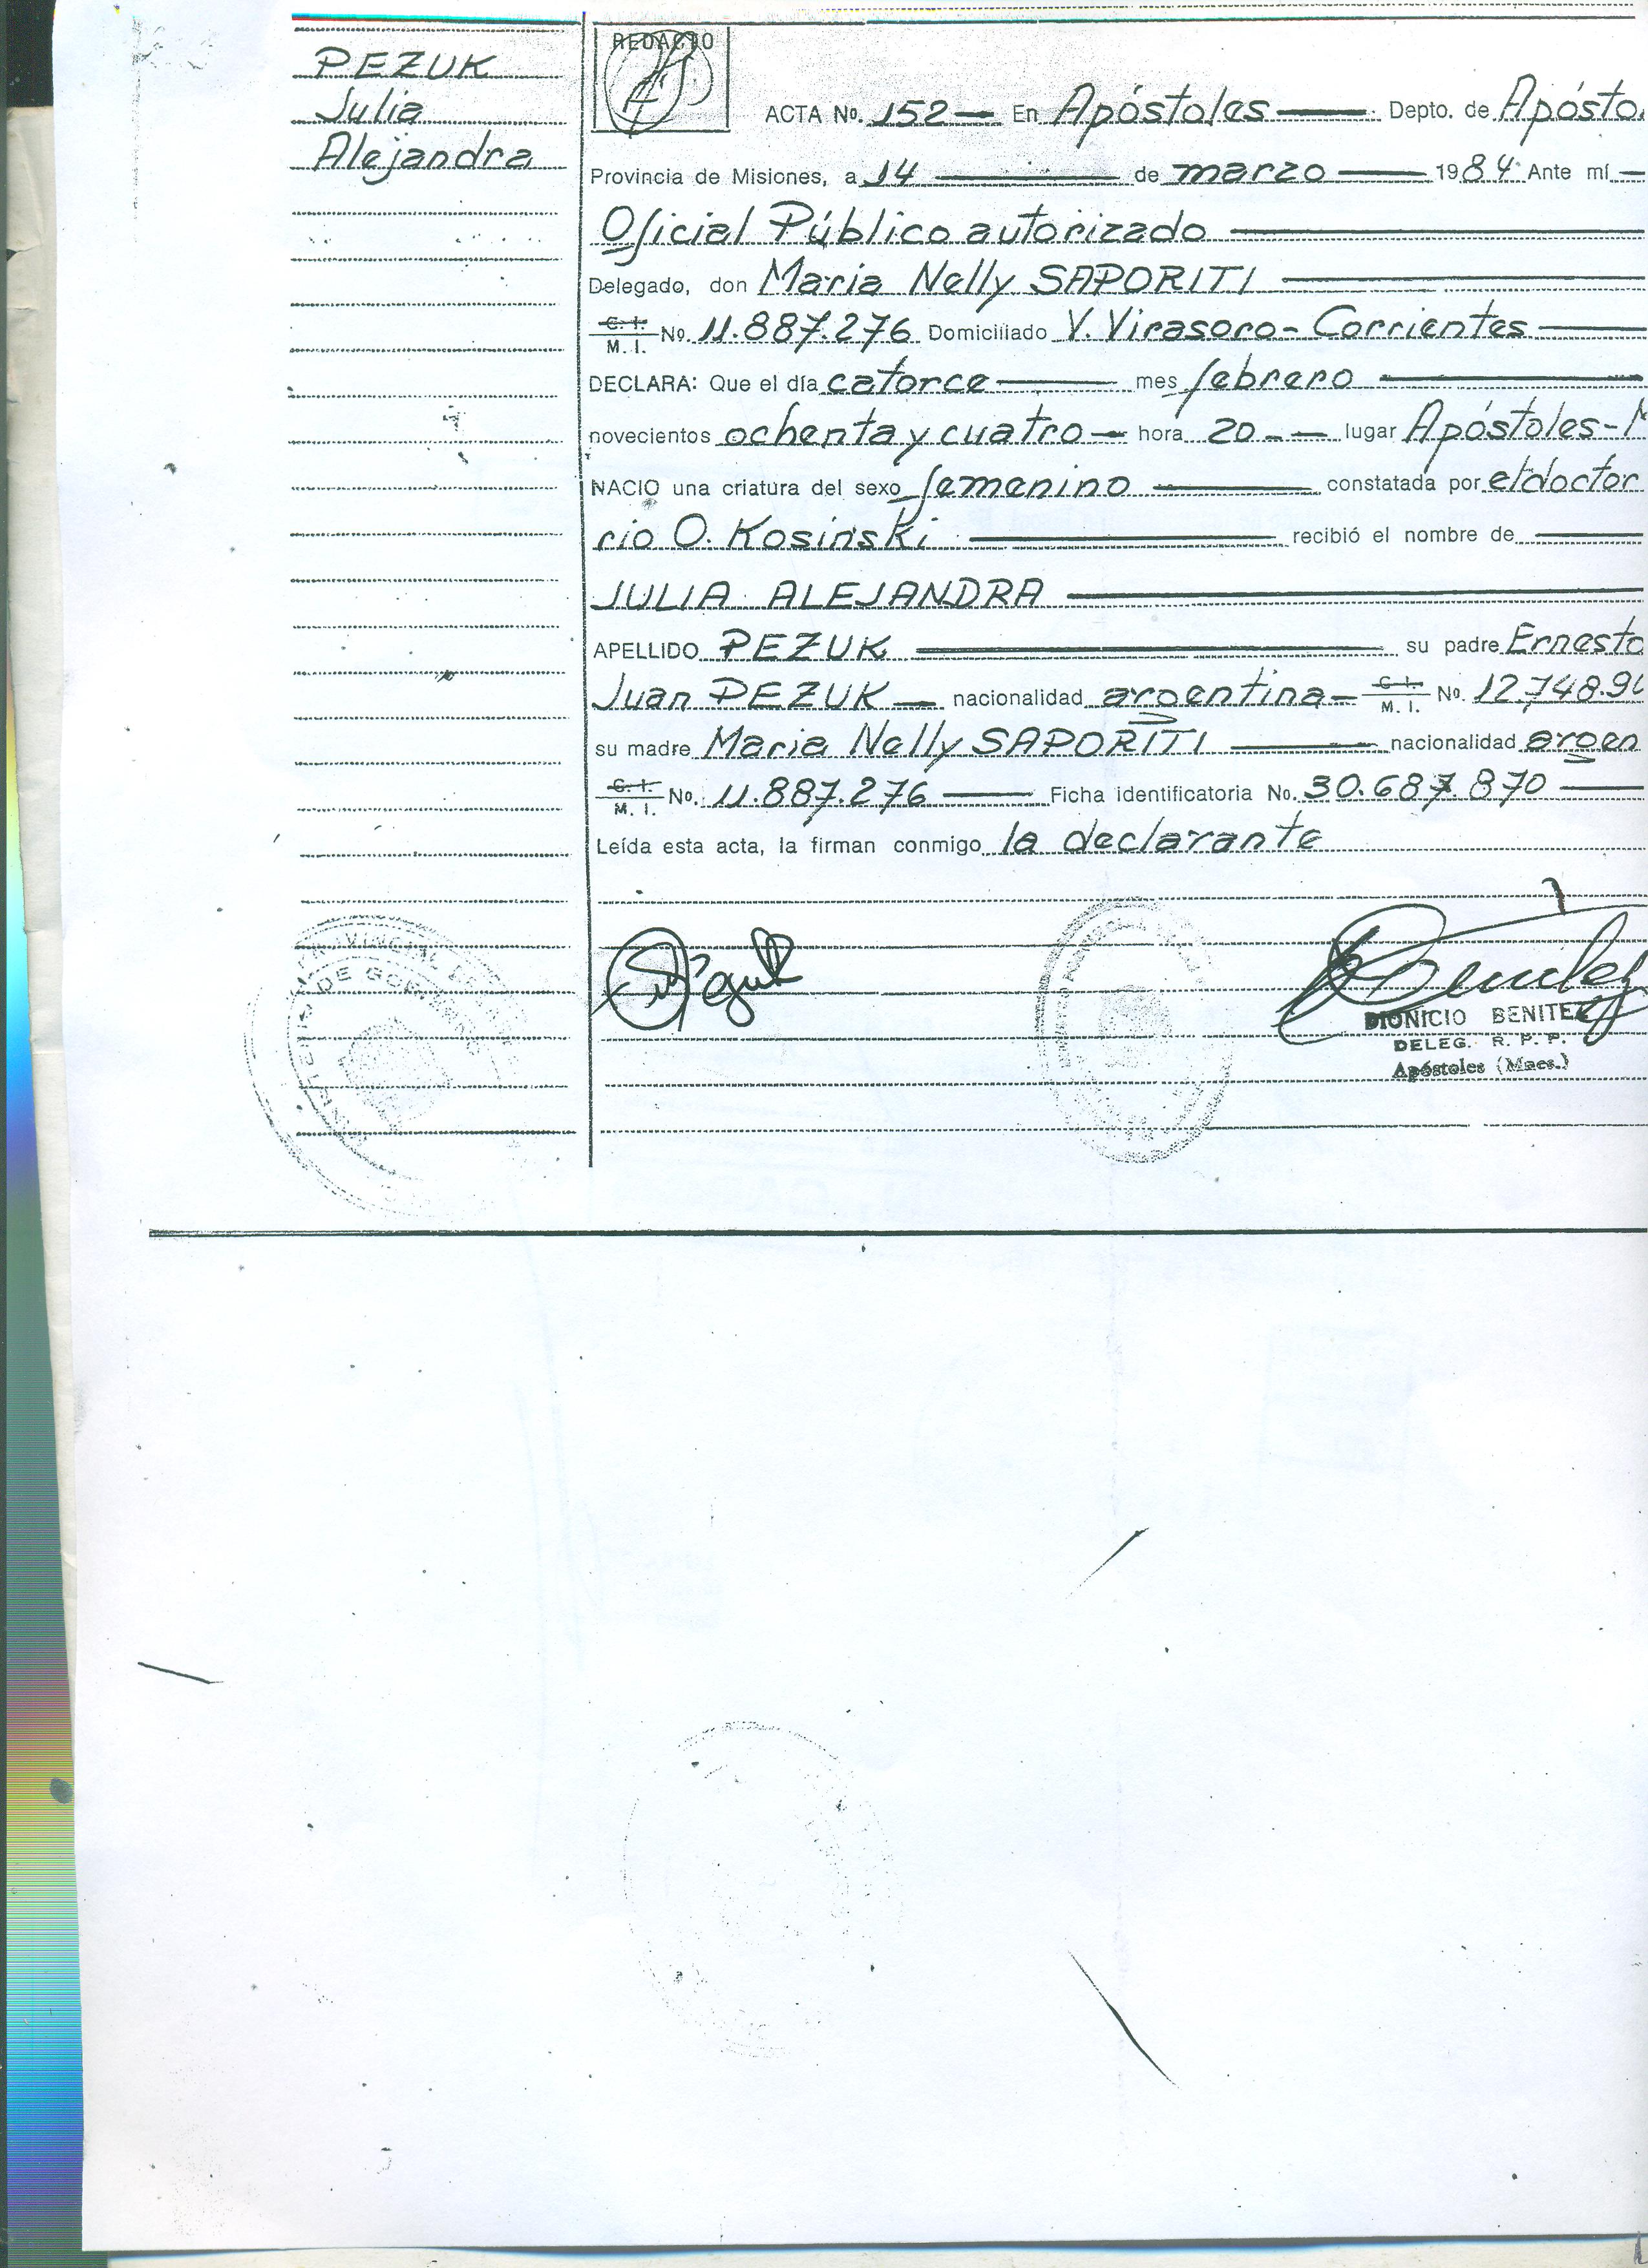 PEZUK
Julia
Alejandra
REDACTO
ACTA No. 152 — En Apóstoles — Depto. de Apósto
Provincia de Misiones, a 14 — de marzo — 1984 Ante mí —
Oficial Público autorizado —
Delegado, don Maria Nelly SAPORITI —
C. I. M. I. No. 11.887.276 Domiciliado V. Virasoro - Corrientes —
DECLARA: Que el día catorce — mes febrero —
novecientos ochenta y cuatro — hora 20 - — lugar Apóstoles - M
NACIO una criatura del sexo femenino — constatada por el doctor
rio O. Kosinski — recibió el nombre de —
JULIA ALEJANDRA —
APELLIDO PEZUK — su padre Ernesto
Juan PEZUK — nacionalidad argentina — C. I. M. I. No. 12.748.9
su madre Maria Nelly SAPORITI — nacionalidad argen
C. I. M. I. No. 11.887.276 — Ficha identificatoria No. 30.687.870 —
Leída esta acta, la firman conmigo la declarante
PROVINCIAL
DE GOBIERNO
DIONICIO BENITEZ
DELEG. R. P. P.
Apóstoles (Mnes.)